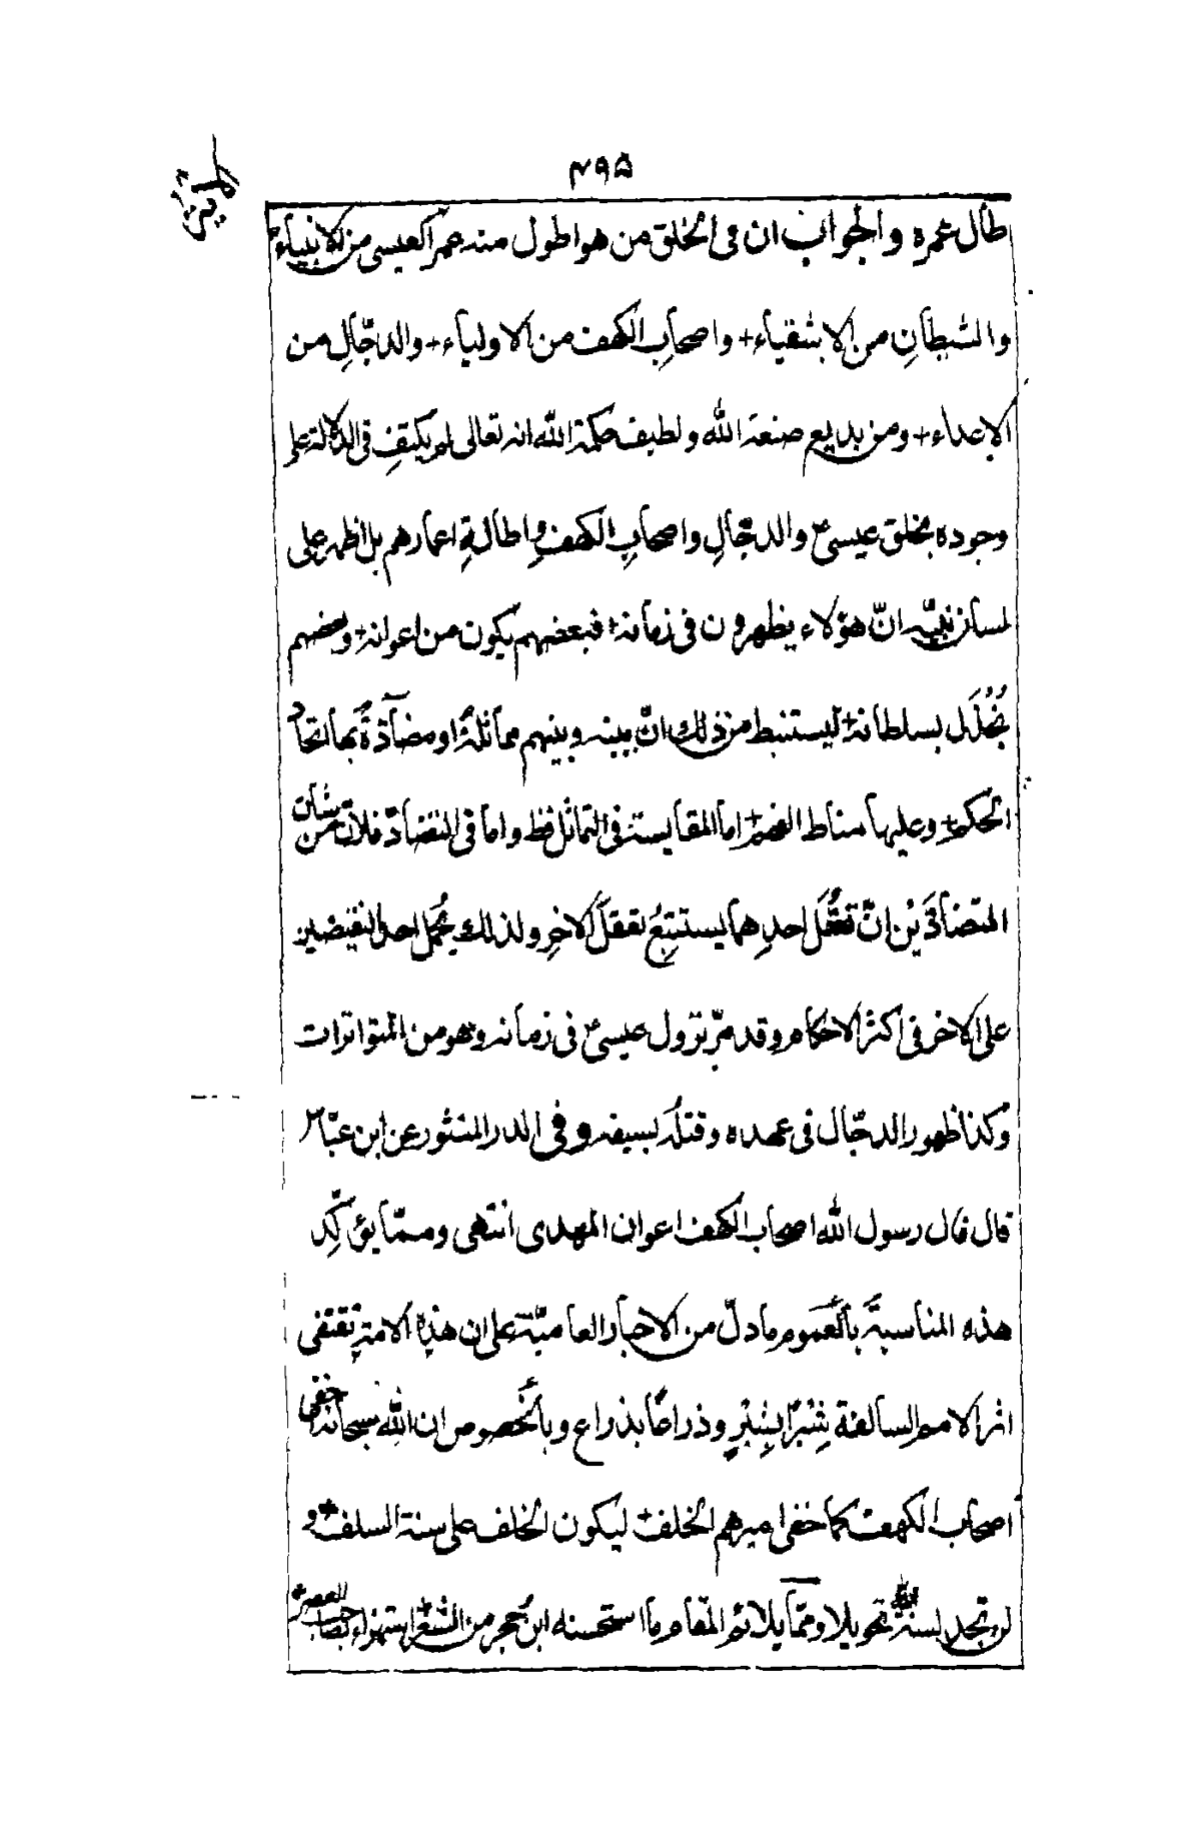 ۴۹۵
طال عمره والجواب ان فى الخلق من هو اطول منه عمرا كعيسى من الانبياء
والشيطانِ من الاشقياء+ واصحابِ الكهف من الاولياء+ والدجّالِ من
الاعداء+ ومن بديع صنعة الله ولطيف حكمة الله انه تعالى لم يكتفِ فى الدلالة على
وجوده بخلق عيسىؑ والدجّالِ واصحابِ الكهف واطالةِ اعمارهم بل اظهر على
لسان نبيّه انّ هؤلاء يظهرون فى زمانه+ فبعضهم يكون من اعوانه+ وبعضهم
يُخْذَل بسلطانه+ ليستنبط من ذلك انّ بينه وبينهم مماثلةً او مضآدّةً بها اتحاد
الحكم+ وعليها مناط الفهم+ اما المقايسة فى التماثل فظ واما فى التضادّ فلانّ من شان
المتضادَّيْن انّ تعقُّلَ احدِهما يستتبِعُ تعقل الاخرِ ولذلك يُحمَل احد النقيضين
على الاخر فى اكثر الاحكام وقد مرّ نزول عيسىؑ فى زمانه وهو من المتواترات
وكذا ظهور الدجّال فى عهده وقتلُه بسيفه وفى الدر المنثور عن ابن عبّاس
قال قال رسول الله اصحاب الكهف اعوان المهدى انتهى وممّا يؤكّد
هذه المناسبةَ بالعموم ما دلّ من الاخبار العاميّة على ان هذه الامة تقتفى
اثر الامم السالفة شِبْرًا بشِبْرٍ وذراعًا بذراع وبالخصوص ان الله سبحانه اخفى
اصحاب الكهف كما اخفى اميرهم الخلف+ ليكون الخلف على سنة السلف+ و
لن تجد لسنة الله تحويلا وممّا يلائم المقام ما استحسنه ابن حجر من الشعر استهزاء بصاحب العصر+